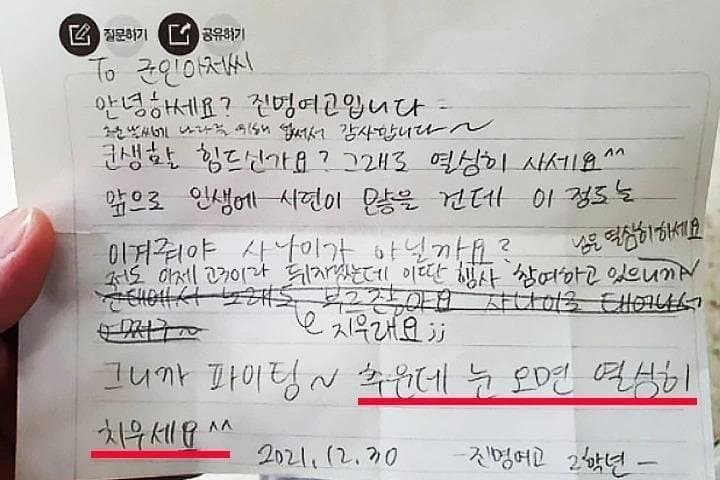 질문하기 공유하기
To 군인아저씨
안녕하세요? 진명여고입니다
추운 날씨에 나라를 위해 힘써서 감사합니다~
군생활 힘드신가요? 그래도 열심히 사세요^^
앞으로 인생에 시련이 많을 건데 이 정도는
이겨줘야 사나이가 아닐까요?
눈은 열심히 하세요
저도 이제 고3이라 뒤지겠는데 이딴 행사 참여하고 있으니까~
군대에서 노래도 부르잖아요 사나이로 태어나서
지우래요;;
그니까 파이팅~ 추운데 눈 오면 열심히
치우세요^^
2021.12.30 -진명여고 2학년-